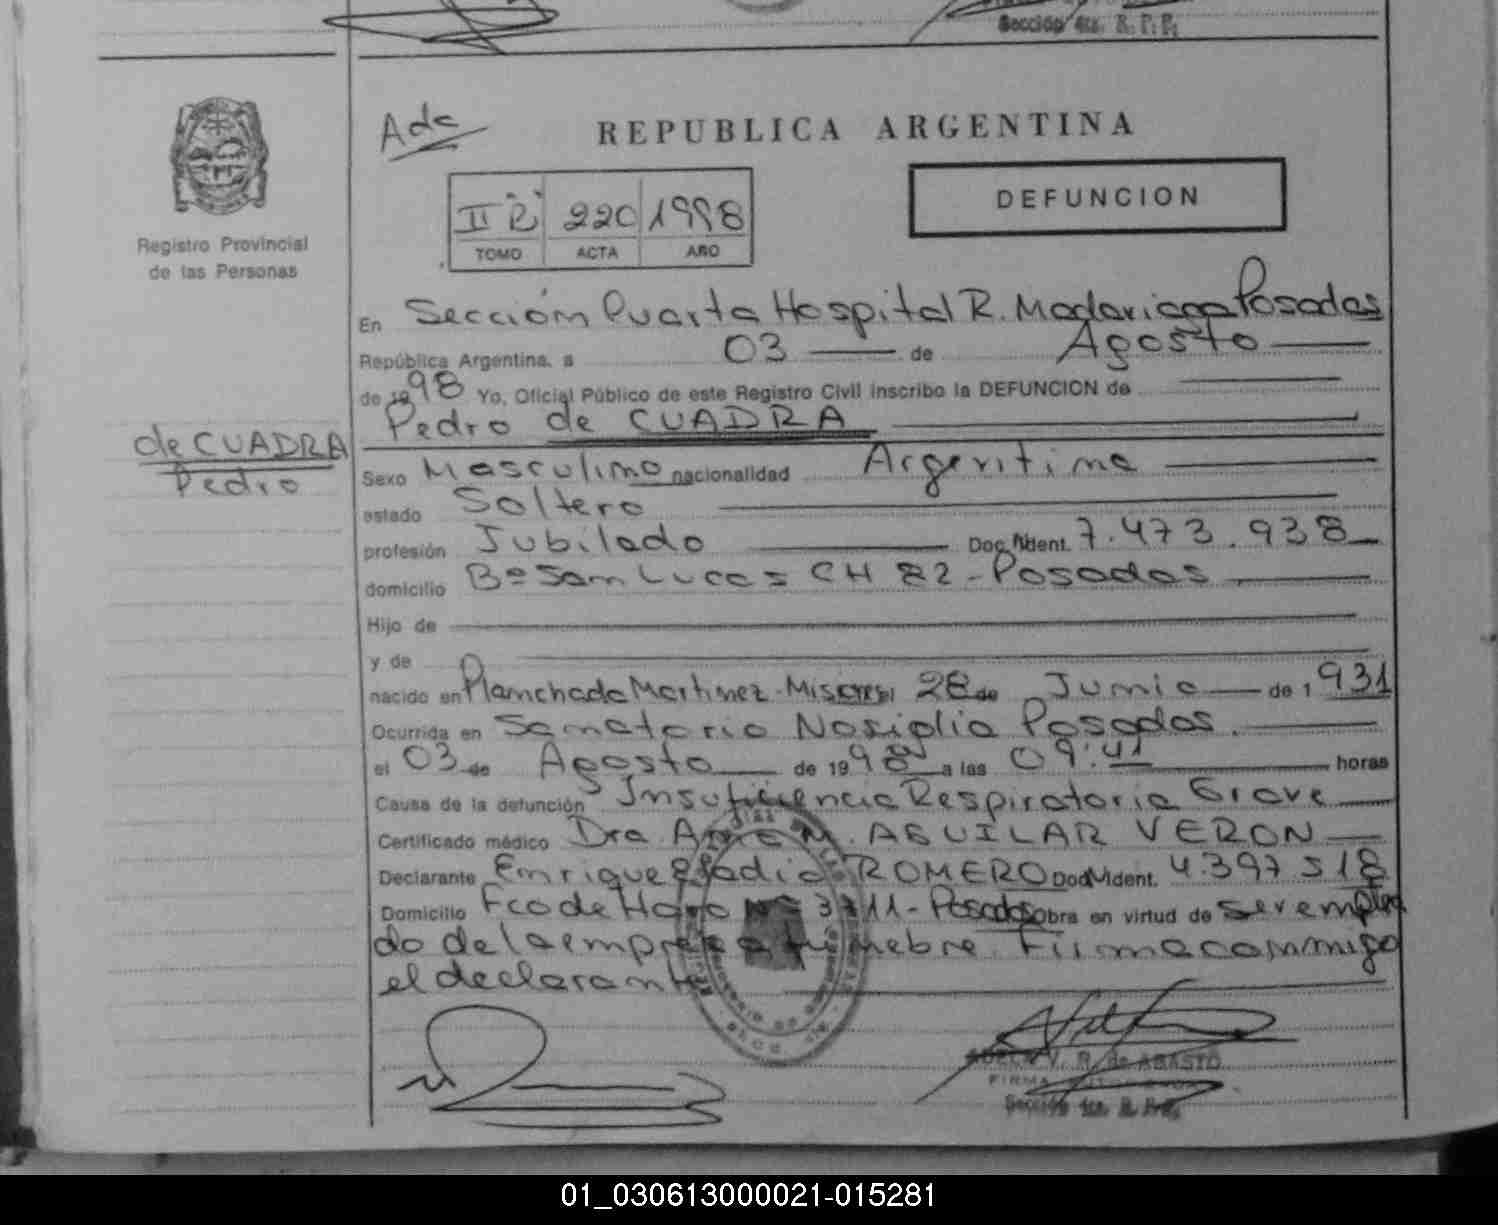 Sección 4ta. R. P. P.
Ada
REPUBLICA ARGENTINA
DEFUNCION
II 220 1998
TOMO ACTA AÑO
Registro Provincial
de las Personas
En Sección Cuarta Hospital R. Madariaga Posadas
República Argentina, a 03 de Agosto
de 1998 Yo, Oficial Público de este Registro Civil inscribo la DEFUNCION de
Pedro de CUADRA
de CUADRA
Pedro
Sexo Masculino nacionalidad Argentina
estado Soltero
profesión Jubilado Doc. Ident. 7.473.938
domicilio Bº San Lucas CH 82 - Posadas
Hijo de
y de
nacido en Planchada Martinez - Misiones el 28 de Junio de 1931
Ocurrida en Sanatorio Nosiglia Posadas.
el 03 de Agosto de 1998 a las 09:41 horas
Causa de la defunción Insuficiencia Respiratoria Grave
Certificado médico Dra. M. AGUILAR VERON
Declarante Enrique Eladio ROMERO Doc. Ident. 4.397518
Domicilio Fco de Haro Nº 3711 - Posadas Obra en virtud de ser emplea
do de la empresa funebre. Firma conmigo
el declarante
ADELA V. R. de ABASTO
FIRMA AUTORIZADA
Sección 4ta. R. P. P.
01_030613000021-015281